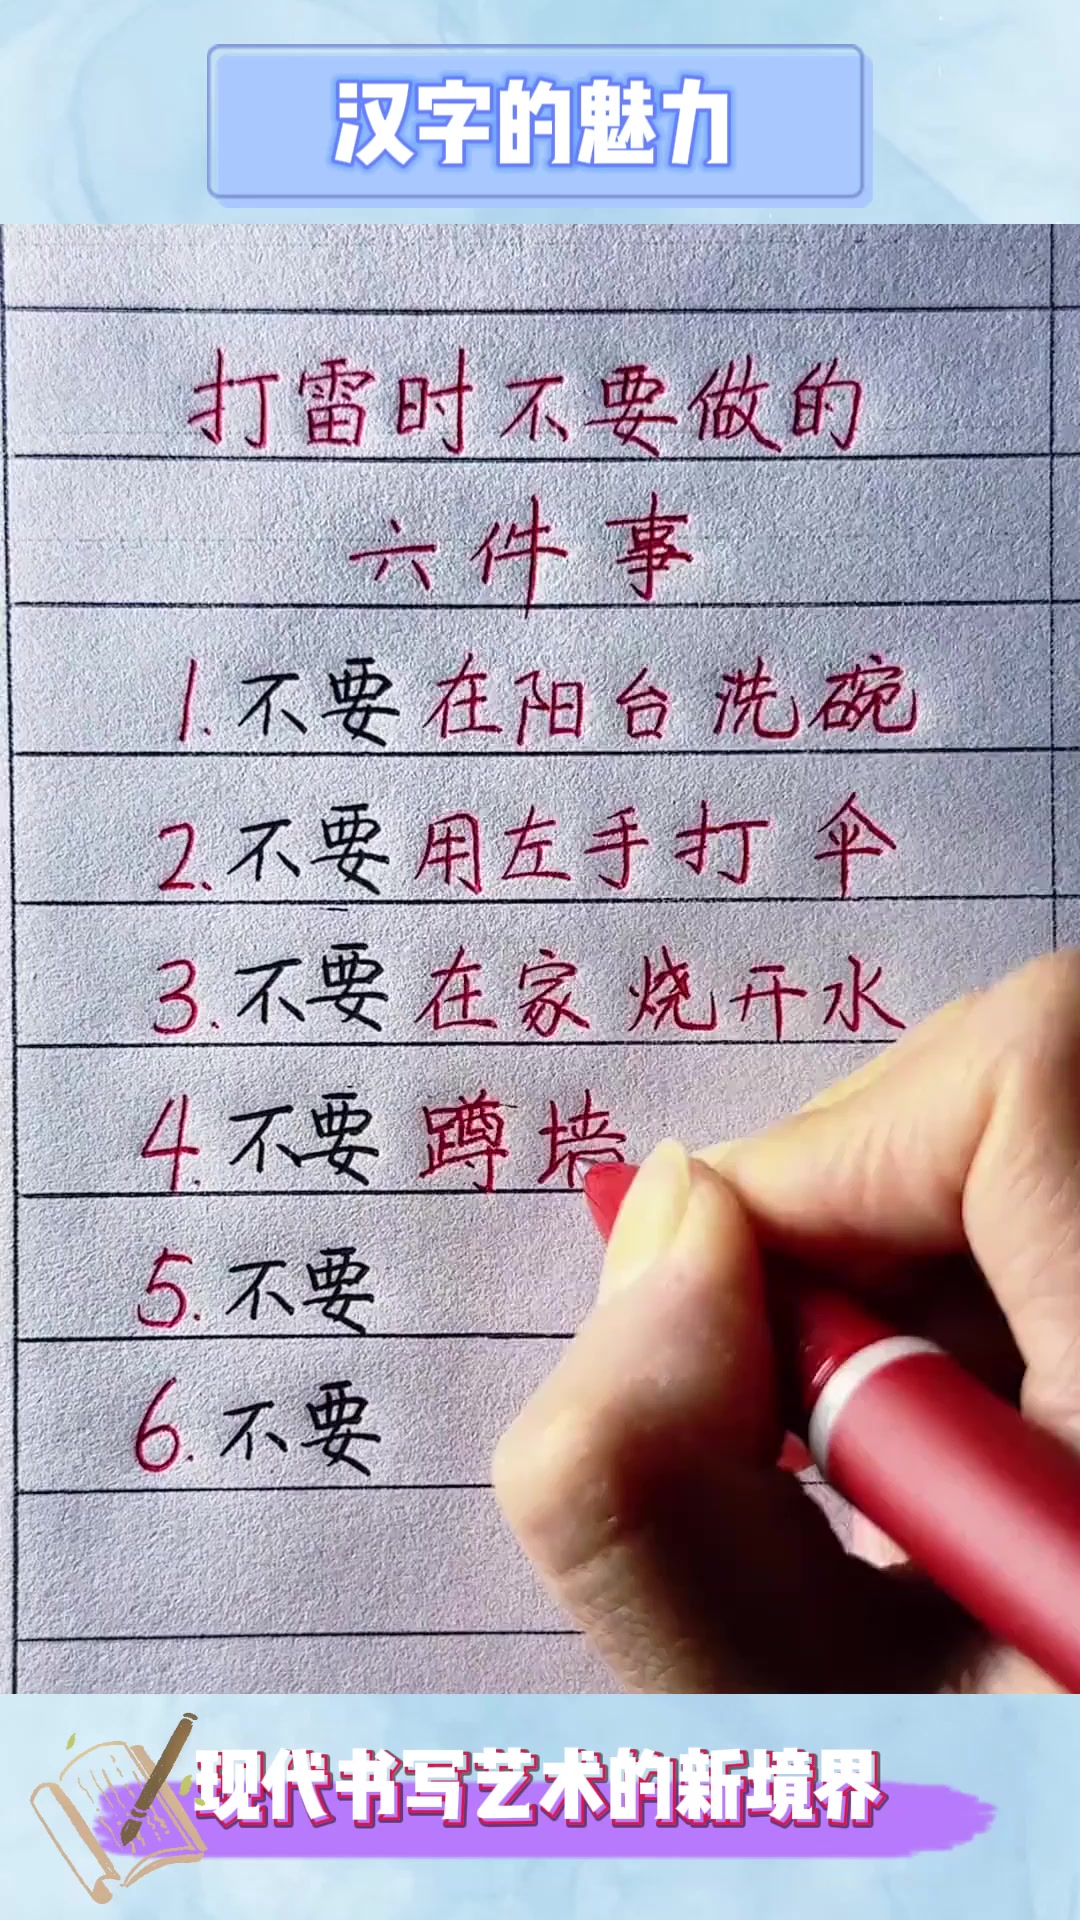 汉字的魅力
打雷时不要做的
六件事
1.不要在阳台洗碗
2.不要用左手打伞
3.不要在家烧开水
4.不要蹲墙
5.不要
6.不要
现代书写艺术的新境界